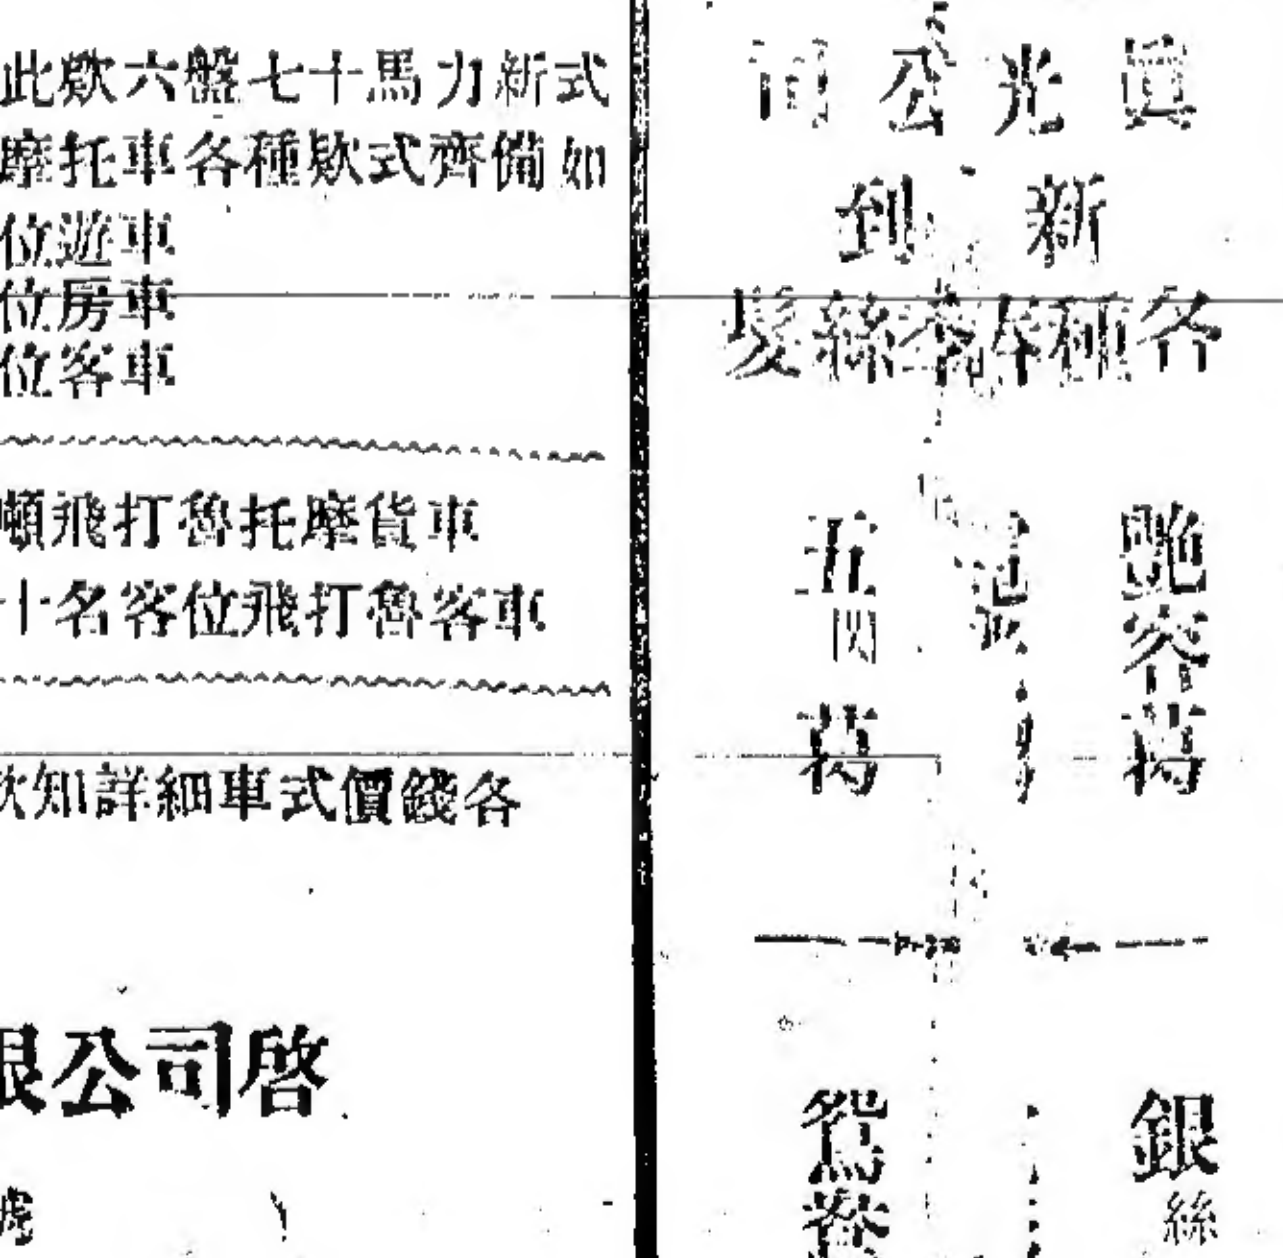 此欵六盤七十馬力新式
摩托車各種欵式齊備如
位遊車
位房車
位客車
噸飛打魯托摩貨車
十名客位飛打魯客車
欲知詳細車式價錢各
限公司啓
號
眞光公司
新到
各種絲髮
艷容葛
五閃葛
銀絲
鴛鴦